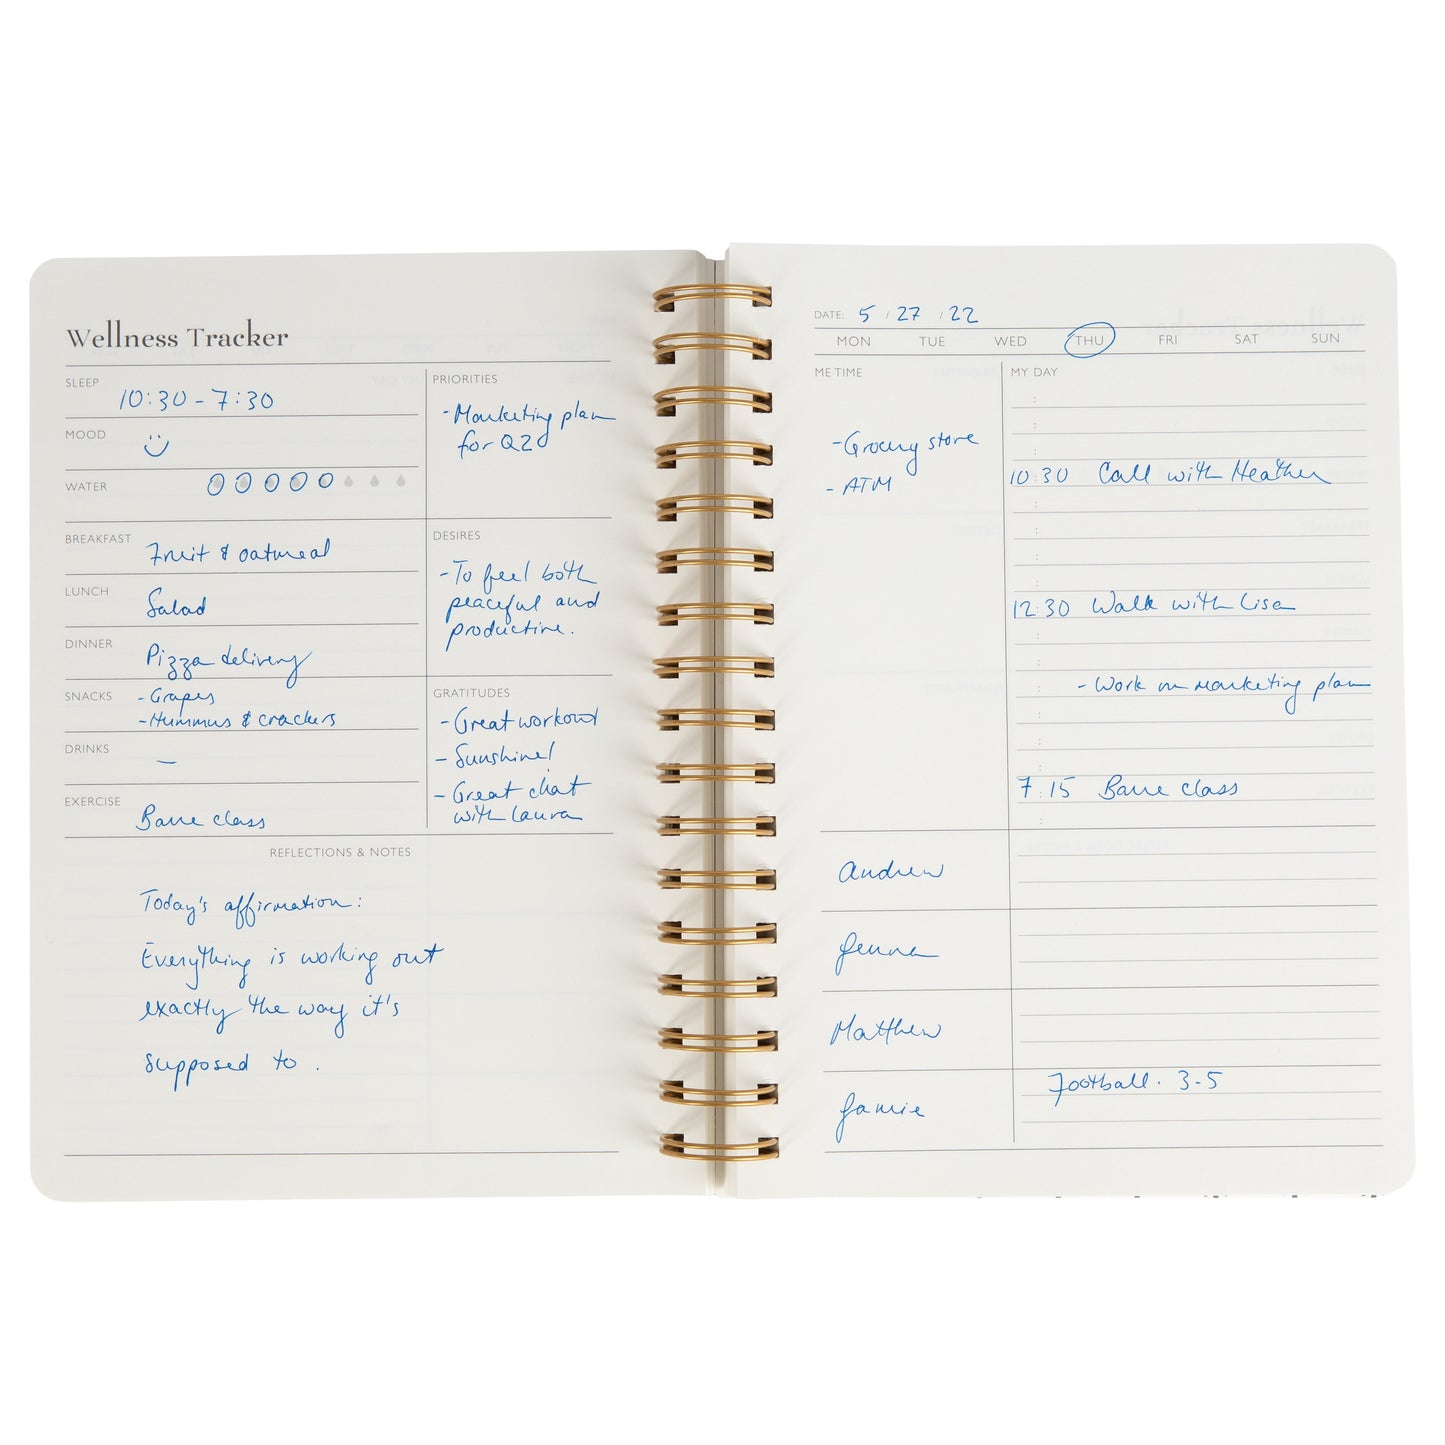 Wellness Tracker
SLEEP
10:30 - 7:30
MOOD
WATER
BREAKFAST
Fruit & oatmeal
LUNCH
Salad
DINNER
Pizza delivery
SNACKS
- Grapes
- Hummus & crackers
DRINKS
—
EXERCISE
Barre class
PRIORITIES
- Marketing plan
for Q2
DESIRES
- To feel both
peaceful and
productive.
GRATITUDES
- Great workout
- Sunshine!
- Great chat
with Laura
REFLECTIONS & NOTES
Today's affirmation:
Everything is working out
exactly the way it's
supposed to.
DATE: 5 / 27 / 22
MON TUE WED THU FRI SAT SUN
ME TIME
- Grocery store
- ATM
MY DAY
10:30 Call with Heather
12:30 Walk with Lisa
- Work on marketing plan
7:15 Barre class
Andrew
Jenna
Matthew
Jamie
Football. 3-5